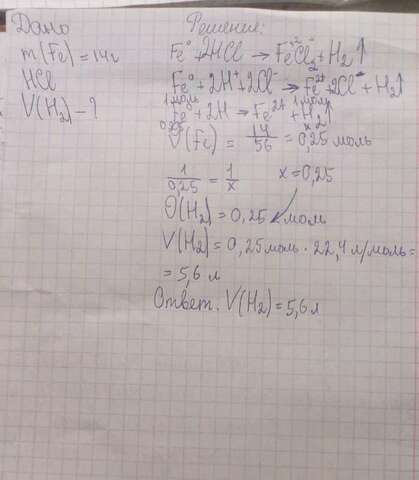 Дано
m(Fe) = 14г
HCl
V(H₂) - ?
Решение:
Fe⁰ + 2HCl → Fe⁺²Cl₂⁻ + H₂↑
Fe⁰ + 2H⁺ + 2Cl⁻ → Fe²⁺ + 2Cl⁻ + H₂↑
1 моль 1 моль
Fe + 2H → Fe²⁺ + H₂↑
0,25 x
ϑ(Fe) = 14/56 = 0,25 моль
1/0,25 = 1/x x = 0,25
ϑ(H₂) = 0,25 моль
V(H₂) = 0,25 моль · 22,4 л/моль =
= 5,6 л
Ответ. V(H₂) = 5,6 л